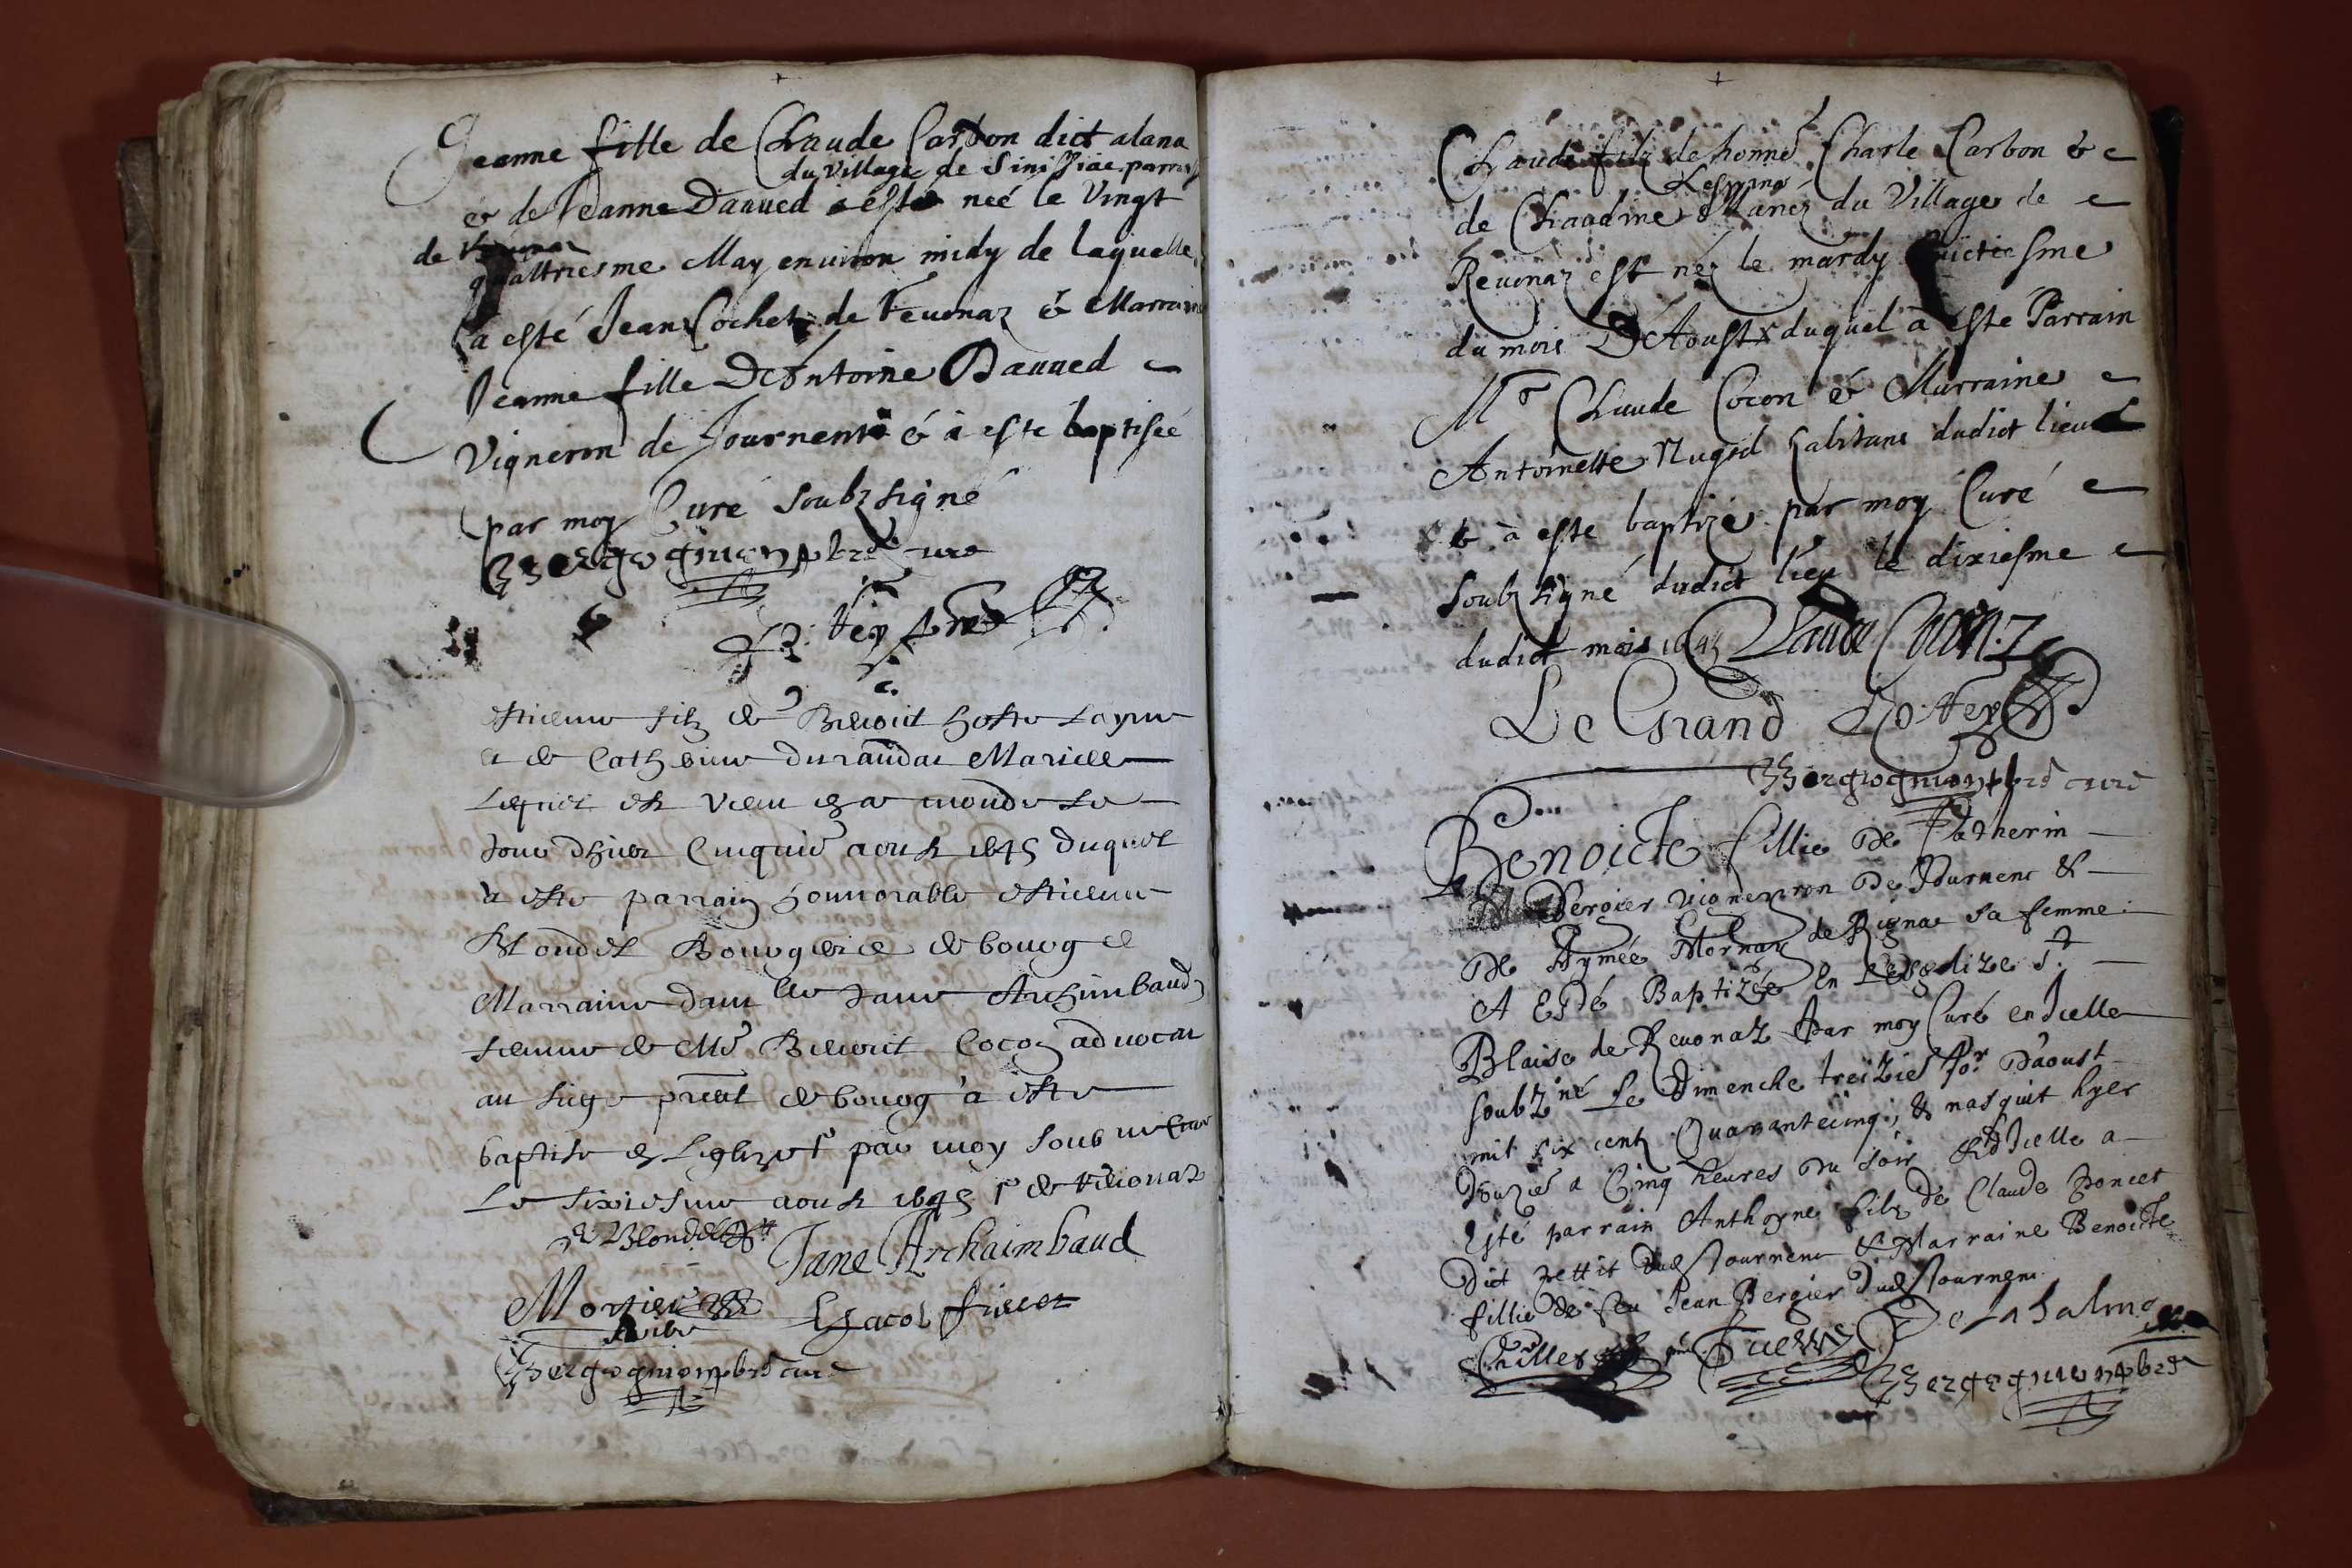 Jeanne fille de Claude Carbon dict alana
du village de Sinissiac parroisse
& de Jeanne Dauued a esté neé le Vingt
de Reuonaz
quattriesme May enuiron midy de laquelle
a esté Jean Cochet de Reuonaz & Marraine
Jeanne fille D'Antoine Dauued
Vigneron de Journent & à esté baptiseé
par moy Curé soubzsigné
Bergognion pbre cure
estienne filz de Benoict hoste
& de Catherine durandat Mariee
Lequel est venu en ce monde le
Jour dhier Cinquie aoust 1645 duquel
a este parrain honnorable estienne
Blondel Bourgeois de bourg &
Marraine dam.lle Jane Archimbaud
femme de Me Benoict Cocon aduocat
au siege pnt de bourg à esté
baptise en Leglize par moy soub ne Cure
Le sixiesme aoust 1645 de Reuonas
E Blondel
Jane Archaimbaud
Mortier
Jacob
Bergognion pbre cure
Claude filz de honne Charle Carbon &
Lespine
de Claudine du Village de
Reuonaz est néz le mardy huictiesme
du mois D'Aoust duquel à esté Parrain
Me Claude Cocon & Marraine
Antoinette habitans dudict lieu
& à esté baptizé par moy Curé
soubzsigné dudict lieu le dixiesme
dudict mois 1645 Claude Cocon
Le Grand
Bergognion pbre cure
Benoicte fillie De Patherin
Bergier vigneron De Journent &
De Aymée Mornay de Rignat sa femme
A Esté Baptizée en L'esglize St
Blaise de Reuonaz Par moy Curé en Icelle
soubzné Le Dimenche treizie Jor D'aoust
mil six centz Quarantecinq, & nasquit hyer
Douzie a Cinq heures Du soir & d'Icelle a
Esté parrain Anthoyne filz de Claude Poncet
Dict pettit Dud Journent & Marraine Benoicte
fillie de feu Jean Bergier Dud Journent
De la balme
Bergognion pbre